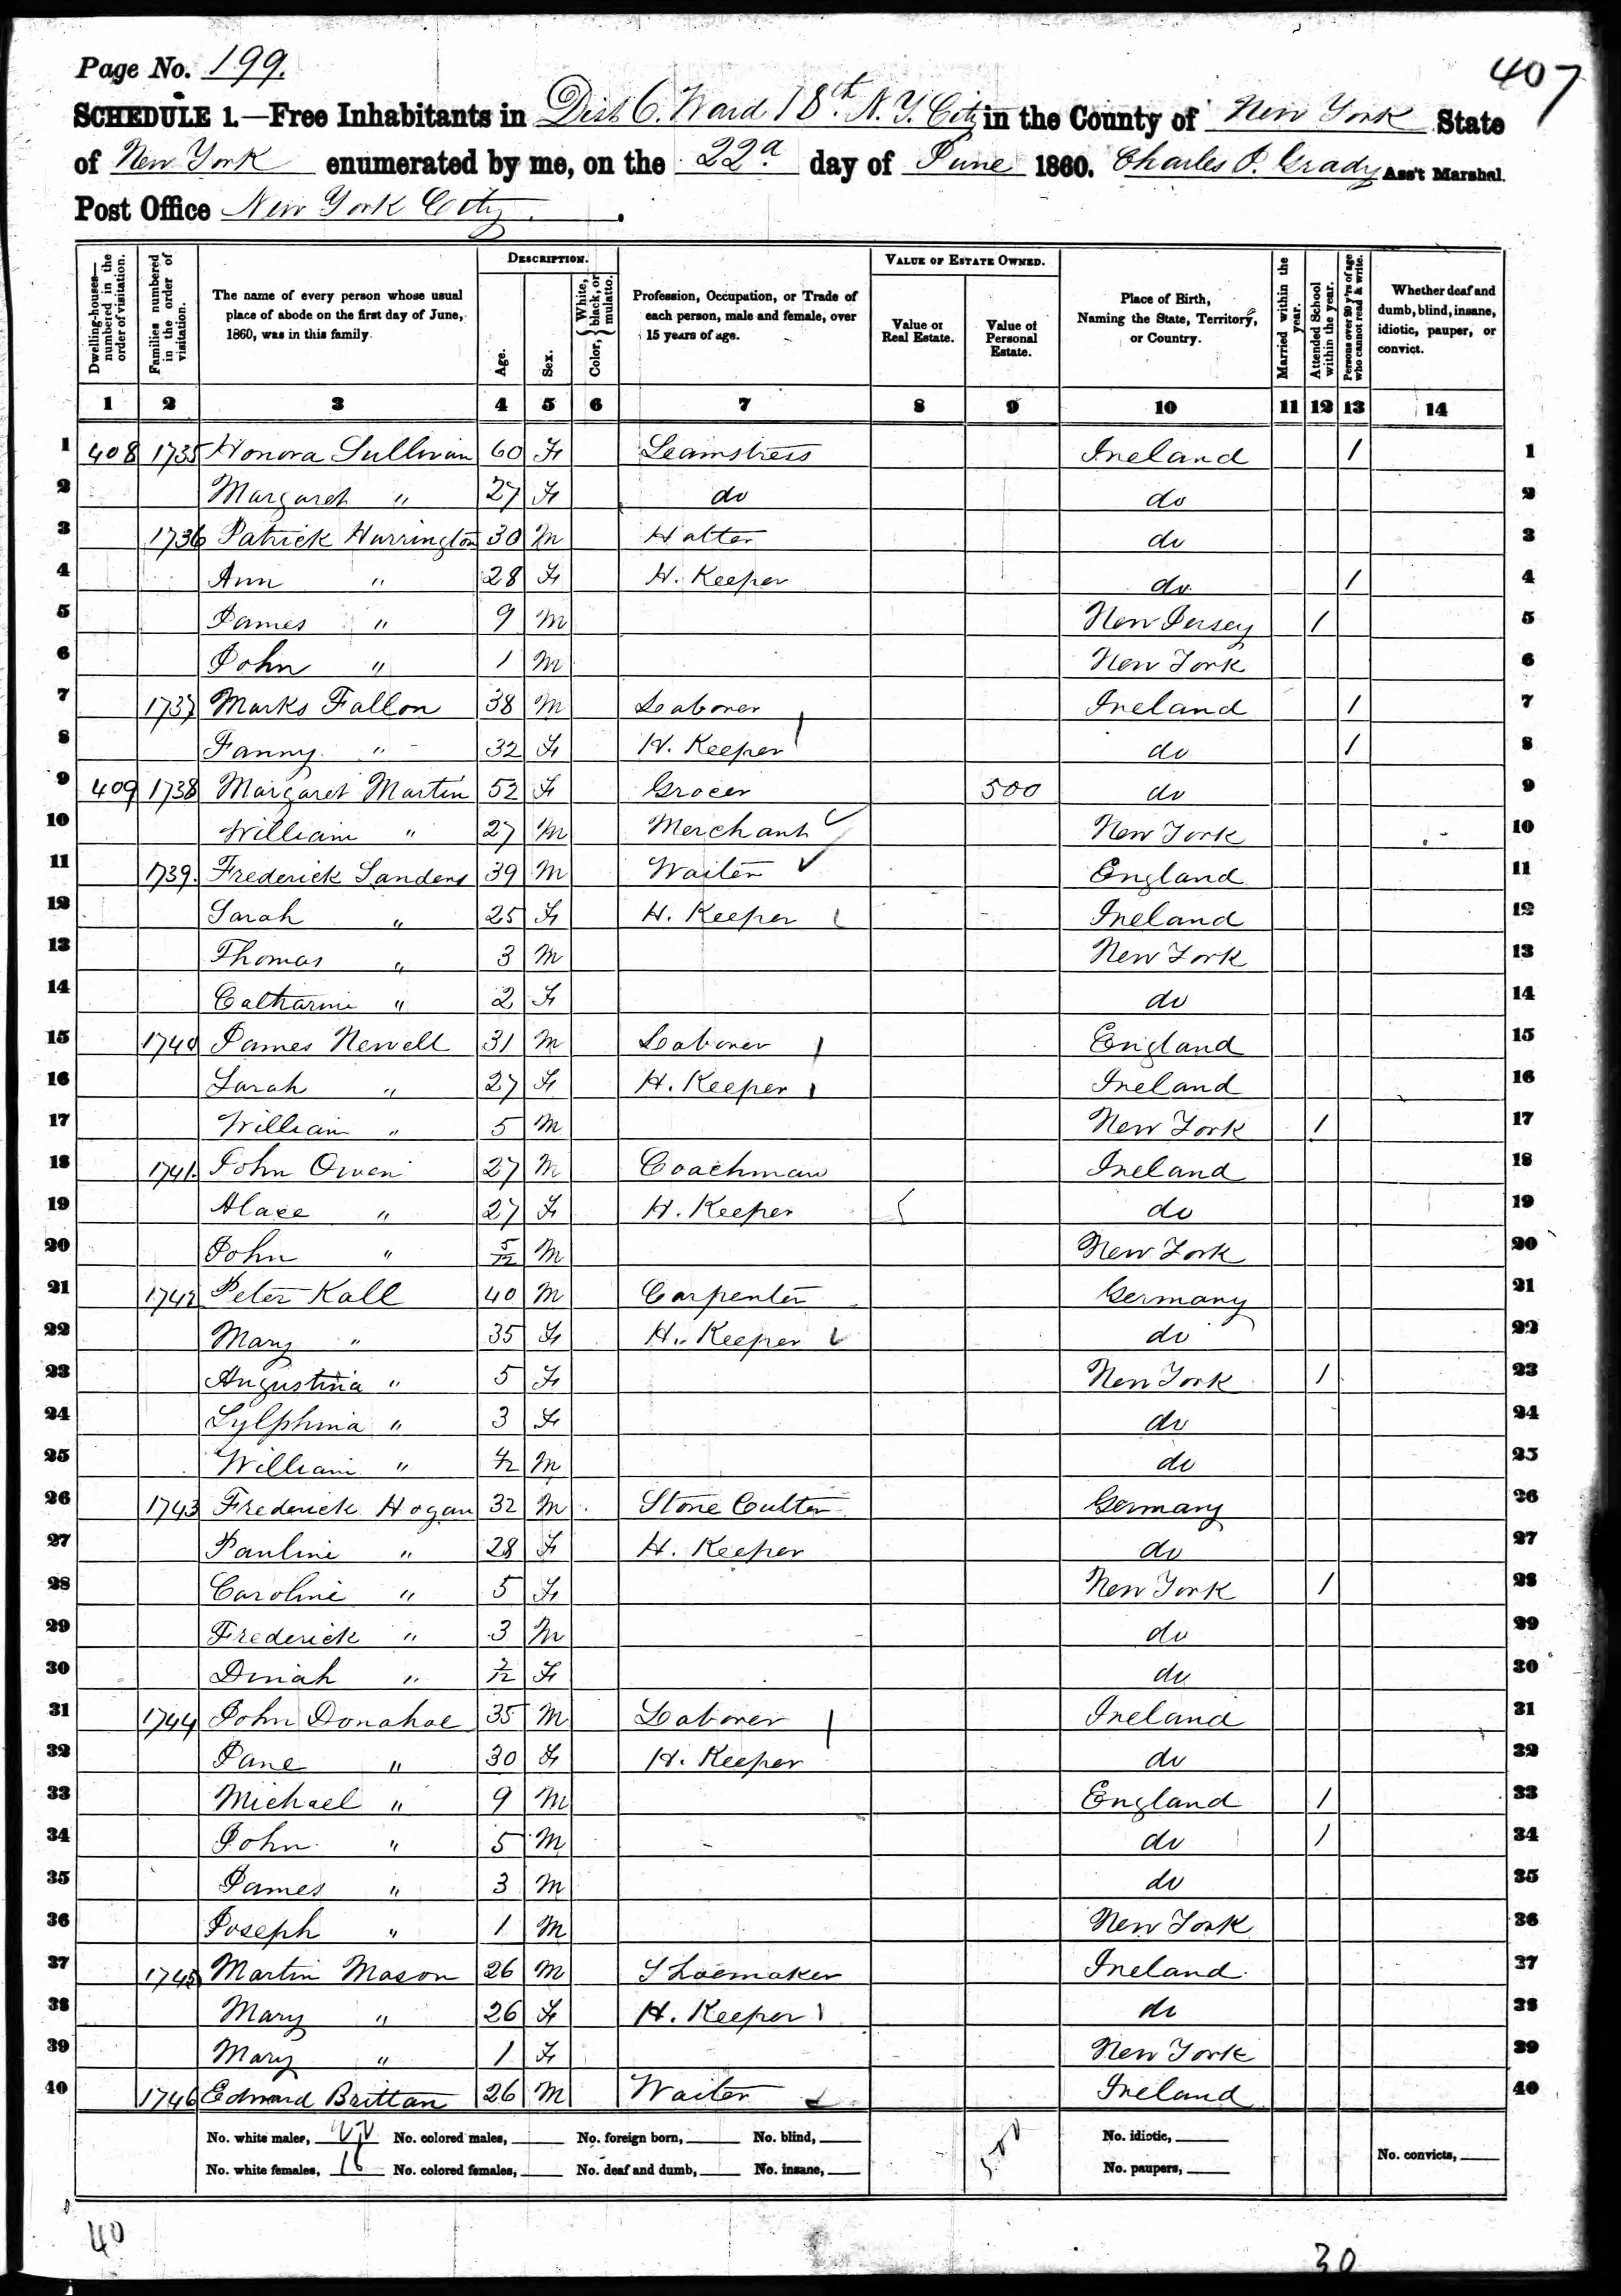 Page No. 199.
407
SCHEDULE 1.—Free Inhabitants in Dist 6. Ward 18th. N. Y. City in the County of New York State
of New York enumerated by me, on the 22d day of June 1860. Charles P. Grady Ass't Marshal.
Post Office New York City.
Dwelling-houses—numbered in the order of visitation.
Families numbered in the order of visitation.
The name of every person whose usual place of abode on the first day of June, 1860, was in this family.
DESCRIPTION.
Age.
Sex.
Color, { White, black, or mulatto.
Profession, Occupation, or Trade of each person, male and female, over 15 years of age.
VALUE OF ESTATE OWNED.
Value of Real Estate.
Value of Personal Estate.
Place of Birth, Naming the State, Territory, or Country.
Married within the year.
Attended School within the year.
Persons over 20 y'rs of age who cannot read & write.
Whether deaf and dumb, blind, insane, idiotic, pauper, or convict.
1 2 3 4 5 6 7 8 9 10 11 12 13 14
1 408 1735 Honora Sullivan 60 F Seamstress Ireland 1 1
2 Margaret " 27 F do do 2
3 1736 Patrick Harrington 30 M Hatter do 3
4 Ann " 28 F H. Keeper do 1 4
5 James " 9 M New Jersey 1 5
6 John " 1 M New York 6
7 1737 Marks Fallon 38 M Laborer Ireland 1 7
8 Fanny " 32 F H. Keeper do 1 8
9 409 1738 Margaret Martin 52 F Grocer 500 do 9
10 William " 27 M Merchant New York 10
11 1739. Frederick Sanders 39 M Waiter England 11
12 Sarah " 25 F H. Keeper Ireland 12
13 Thomas " 3 M New York 13
14 Catharine " 2 F do 14
15 1740 James Newell 31 M Laborer England 15
16 Sarah " 27 F H. Keeper Ireland 16
17 William " 5 M New York 1 17
18 1741. John Owen 27 M Coachman Ireland 18
19 Alace " 27 F H. Keeper do 19
20 John " 5/12 M New York 20
21 1742 Peter Kall 40 M Carpenter Germany 21
22 Mary " 35 F H. Keeper do 22
23 Augustina " 5 F New York 1 23
24 Sylphina " 3 F do 24
25 William " M do 25
26 1743 Frederick Hogan 32 M Stone Cutter Germany 26
27 Pauline " 28 F H. Keeper do 27
28 Caroline " 5 F New York 1 28
29 Frederick " 3 M do 29
30 Dinah " F do 30
31 1744 John Donahoe 35 M Laborer Ireland 31
32 Jane " 30 F H. Keeper do 32
33 Michael " 9 M England 1 33
34 John " 5 M do 1 34
35 James " 3 M do 35
36 Joseph " 1 M New York 36
37 1745 Martin Mason 26 M Shoemaker Ireland 37
38 Mary " 26 F H. Keeper do 38
39 Mary " 1 F New York 39
40 1746 Edward Brittan 26 M Waiter Ireland 40
No. white males, No. colored males, No. foreign born, No. blind, No. idiotic,
No. white females, No. colored females, No. deaf and dumb, No. insane, 500 No. paupers, No. convicts,
40
30